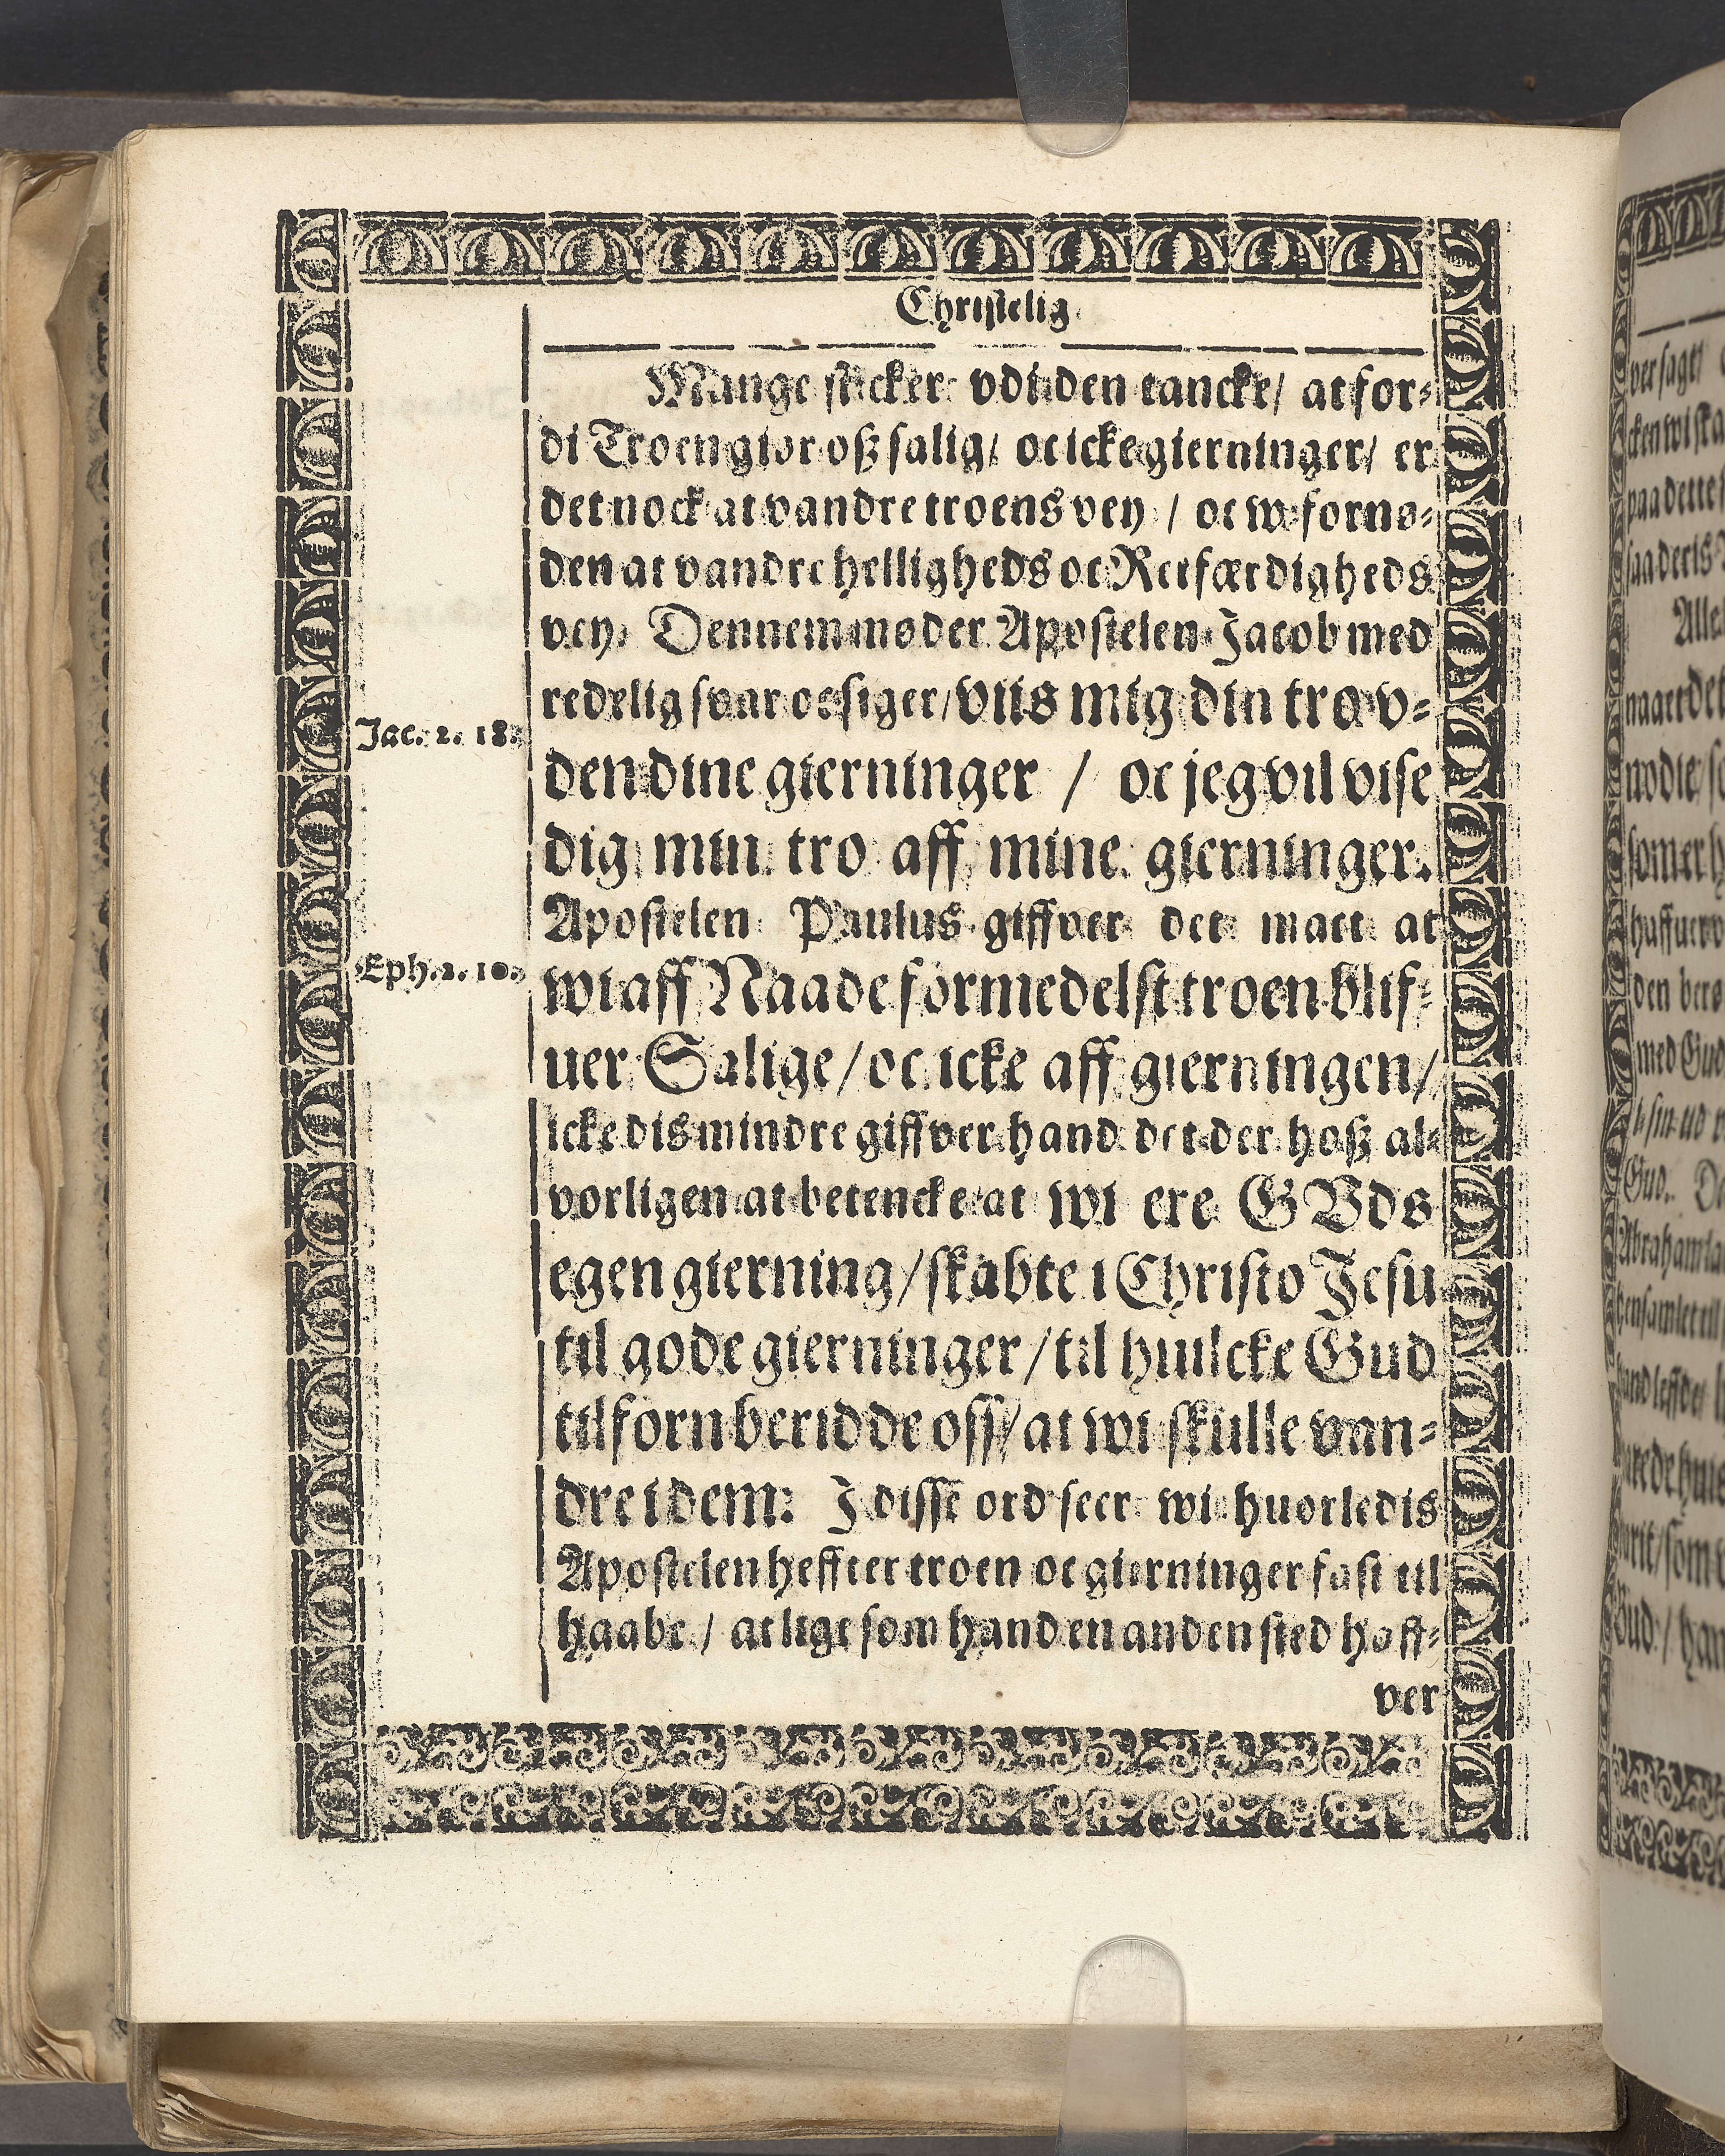 Christelig
Mange sticker vdi den tancke/ at for⸗
di Troen giør oß salig/ oc icke gierninger/ er
det nock at vandre troens vey / oc w-fornø⸗
den at vandre helligheds oc Retfærdigheds
vey. Dennem møder Apostelen Jacob med
redelig svar oc siger/ viis mig din tro v⸗
den dine gierninger / oc jeg vil vise
Jac. 2. 18.
dig min tro aff mine gierninger.
Apostelen Paulus giffver det matt at
Eph. 2. 10.
wi aff Naade formedelst troen blif⸗
uer Salige/ oc icke aff gierningen/
icke dis mindre giffver hand det der hoß al⸗
vorligen at betencke at wi ere GVds
egen gierning/ skabte i Christo Jesu
til gode gierninger/ til huilcke Gud
tilforn beridde oss/ at wi skulle van⸗
dre i dem: J disse ord seer wi huorledis
Apostelen heffter troen oc gierninger fast til
haabe / at lige som hand en anden sted haff⸗
ver